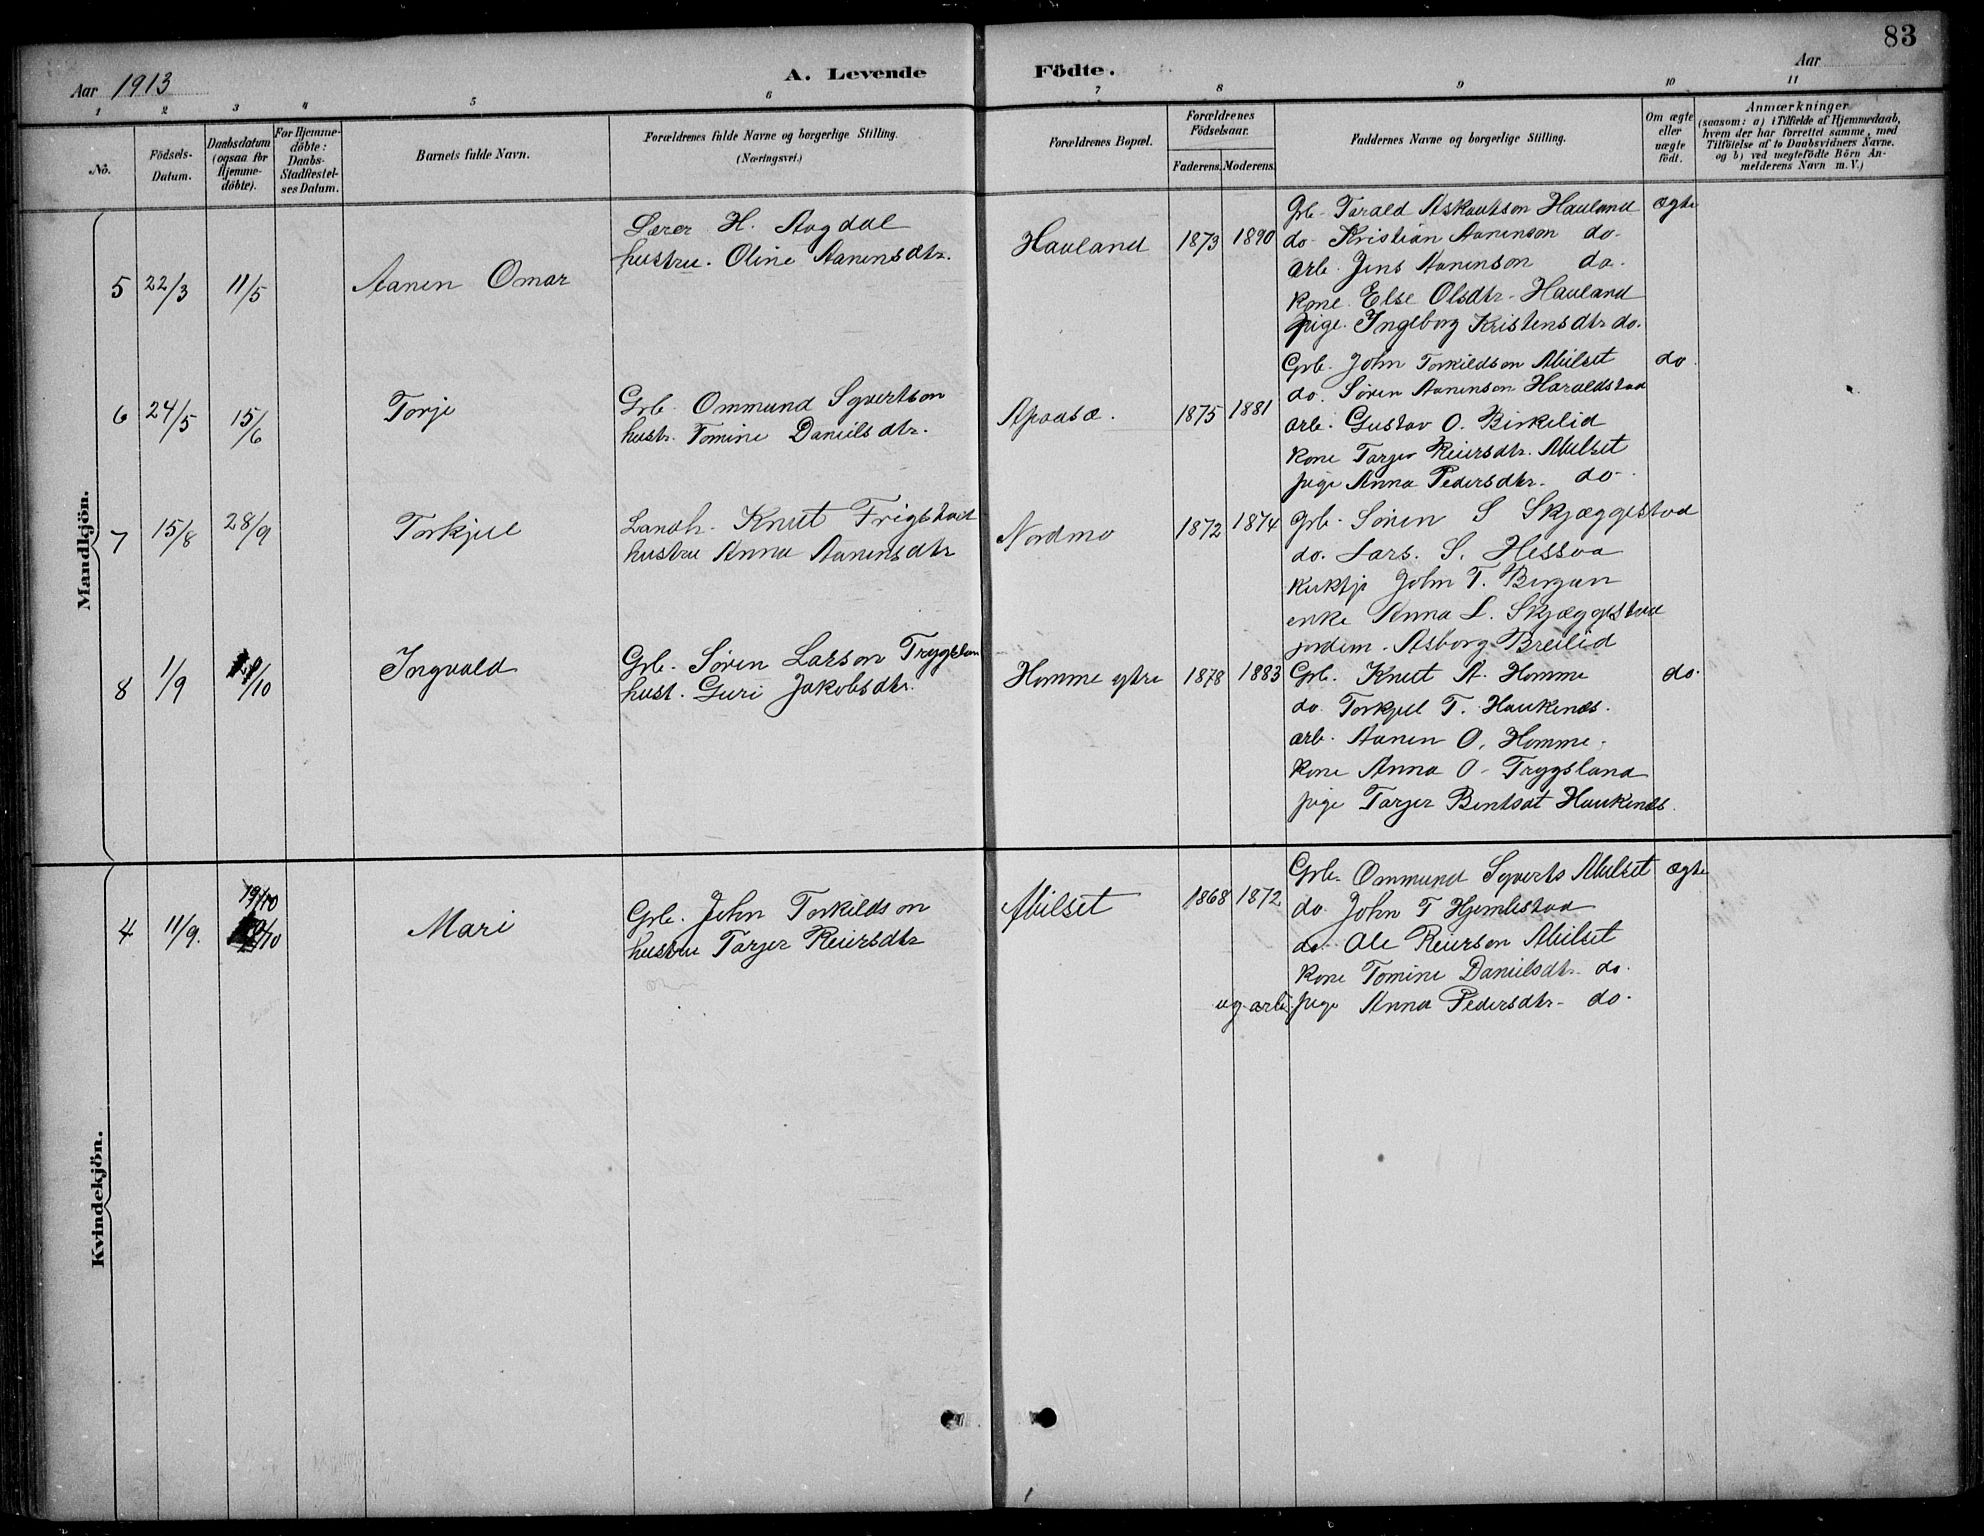 83
Aar 1913 A. Levende Födte. Aar
1 2 3 4 5 6 7 8 9 10 11
No.
Födsels-Datum.
Daabsdatum (ogsaa for Hjemme-döbte).
For Hjemme-döbte: Daabs-Stadfestel-ses Datum.
Barnets fulde Navn.
Forældrenes fulde Navne og borgerlige Stilling.
(Næringsvei.)
Forældrenes Bopæl.
Forældrenes Födselsaar.
Faderens. Moderens.
Faddernes Navne og borgerlige Stilling.
Om ægte eller uægte födt.
Anmærkninger
(saasom: a) i Tilfælde af Hjemmedaab,
hvem der har forrettet samme, med
Tilföielse af to Daabsvidners Navne.
og b) ved uegtefödte Börn An-
melderens Navn m. V.)
Mandkjön.
5 22/3 11/5 Aanen Omar
Lærer H. Aagdal
hustru. Oline Aanensdtr.
Hauland 1873 1890
Grb. Tarald Askautson Hauland ægte
do. Kristian Aanenson do.
arb. Jens Aanenson do.
kone. Else Olsdtr. Hauland
pige. Ingeborg Kristensdtr do.
6 24/5 15/6 Torje
Grb. Ommund Syvertson
hustr. Tomine Danielsdtr.
1875 1881
Grb. John Torkildson do
do. Søren Aanenson Haraldstad
arb. Gustav O. Birkelid
kone Tarjer Reiersdtr.
pige Anna Pedersdtr. do.
7 15/8 28/9 Torkjel
Landh. Knut Frigstad
hustru Anna Aanensdtr
Nordmo 1872 1874
Grb. Søren S Skjæggestad
do. Lars. S. Hessaa
John T. Bergan
enke Anna L. Skjæggestad
jordem. Asborg Breilid
8 1/9 /10 Ingvald
Grb. Søren Larson Trygslan
hust. Guri Jakobsdtr.
Homme ytre 1878 1883
Grb. Knut A. Homme do.
do. Torkjel T. Haukenæs.
arb. Aanen O. Homme.
kone Anna O. Trygsland
pige Tarjer Bentsdt Haukenæs.
Kvindekjön.
4 11/9. 19/10 Mari
Grb. John Torkildson
hustru Tarjer Reiersdtr
1868 1872
Grb. Ommund Syverts ægte
do. John T Hjemlestad
do. Ole Reierson
kone Tomine Danielsdtr. do.
ug. arb. pige Anna Pedersdtr. do.